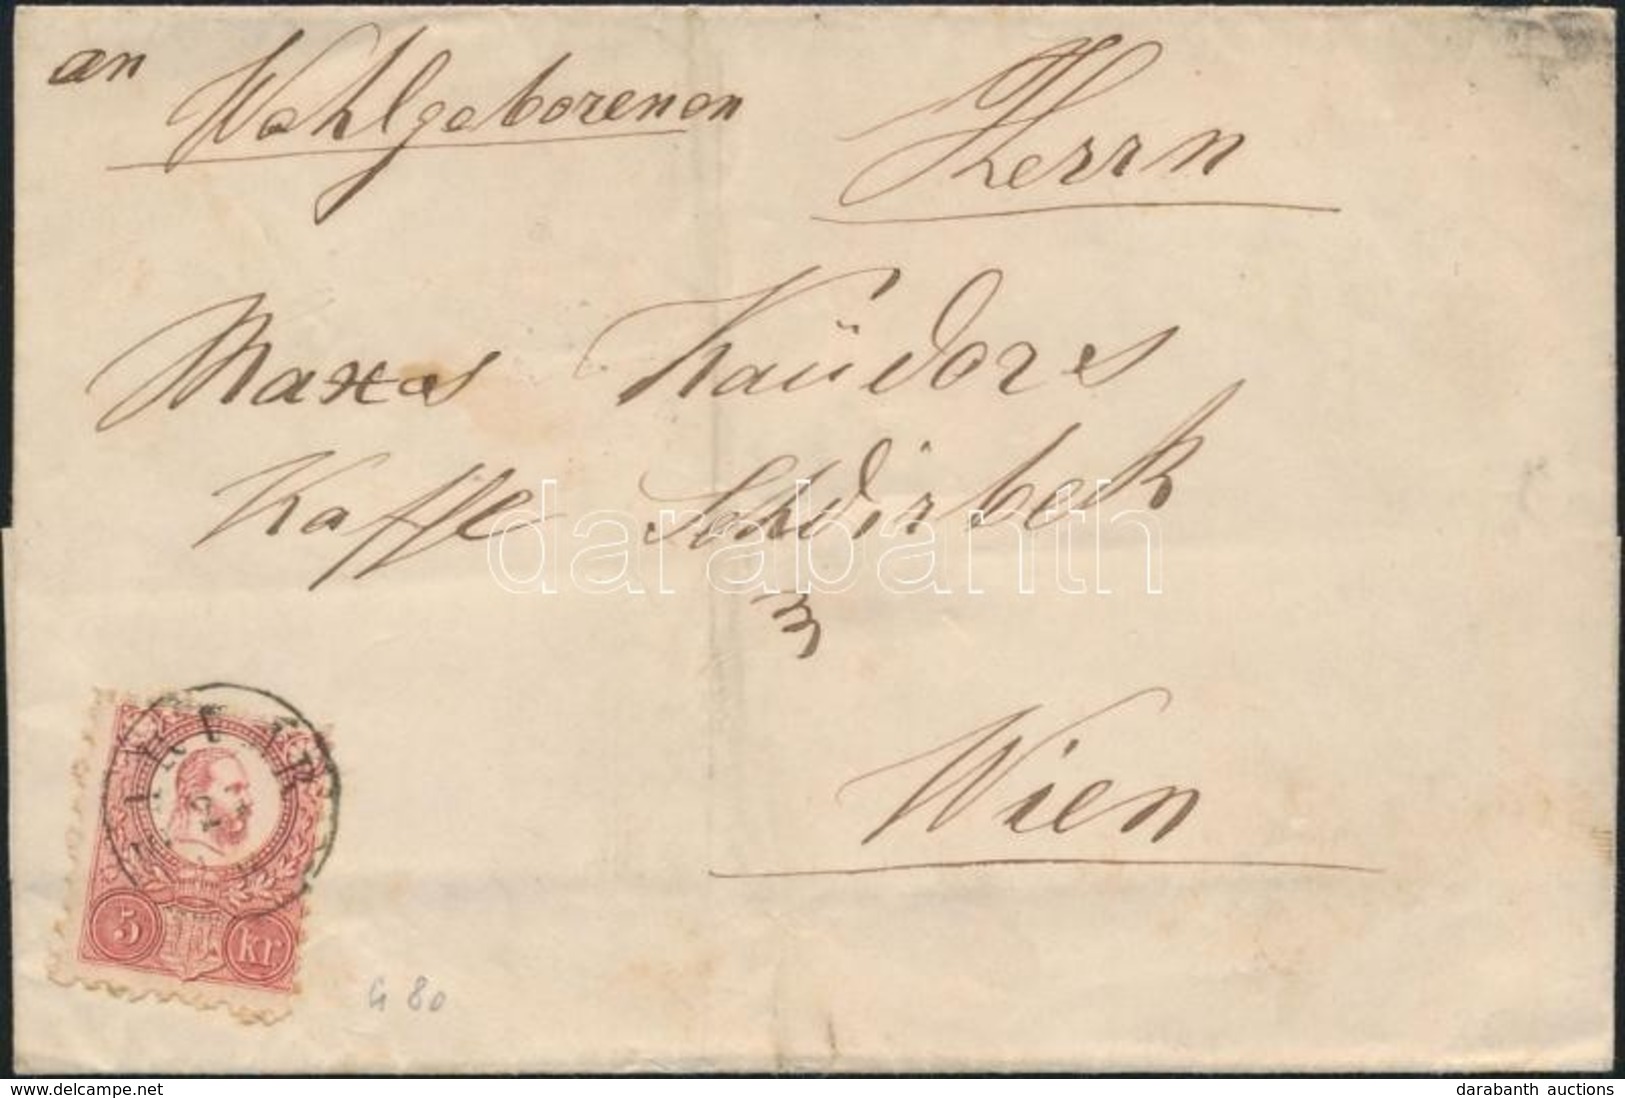 an Wohlgeborenen Herrn
Kaüdors
Kaffe Schdirbek
darabanth
Wien
5 kr
G 80
www.delcampe.net
darabanth auctions